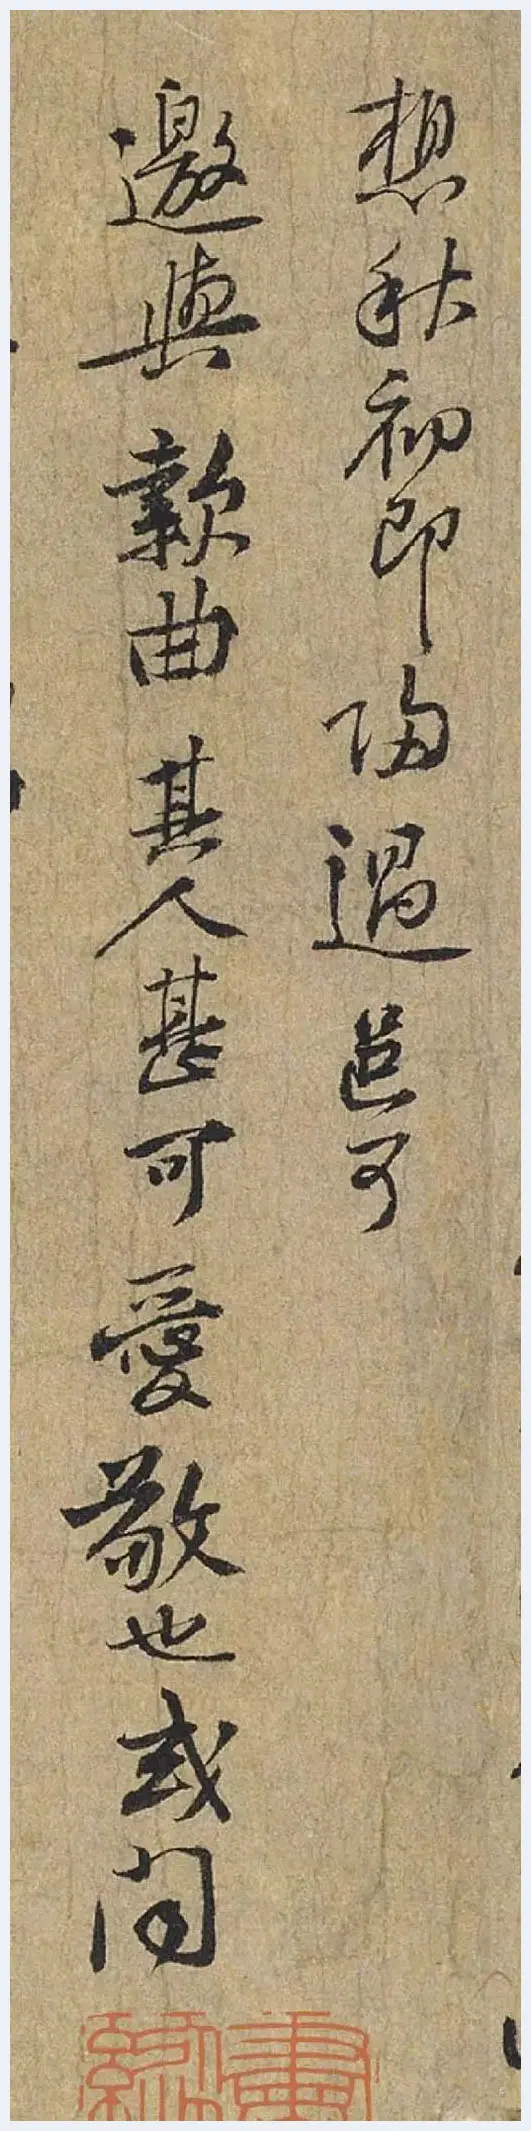 想秋初即歸過邑可
邀與款曲其人甚可愛敬也或問